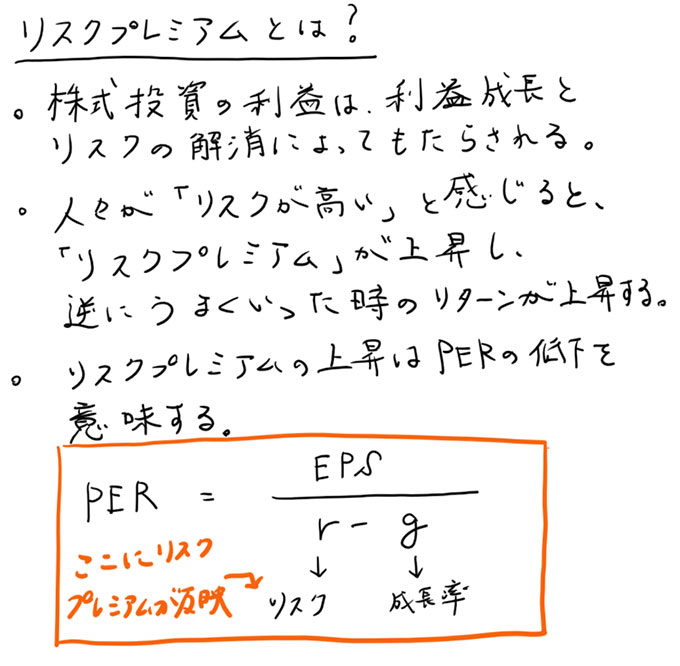 リスクプレミアムとは?
。株式投資の利益は、利益成長と
リスクの解消によってもたらされる。
。人々が「リスクが高い」と感じると、
「リスクプレミアム」が上昇し、
逆にうまくいった時のリターンが上昇する。
。リスクプレミアムの上昇はPERの低下を
意味する。
PER = EPS
r - g
ここにリスク
↓ ↓
プレミアムが反映 → リスク 成長率